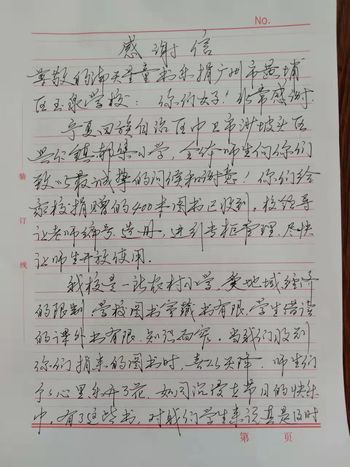 No.
感谢信
尊敬的南天童书乐捐广州市黄埔
区玉泉学校：你们好！非常感谢.
宁夏回族自治区中卫市沙坡头区
兴仁镇郝集小学，全体师生向你们
致以最诚挚的问候和谢意！你们给
我校捐赠的400本图书已收到，校领导
让老师编号、造册，进引专柜管理，尽快
让师生开放使用.
我校是一所农村小学，受地域经济
的限制，学校图书室藏书有限，学生借读
的课外书有限，知识面窄，当我们收到
你们捐来的图书时，喜从天降，师生们
个个心里乐开了花，如同沉浸在节日的快乐
中，有了这些书，对我们学生来说真是及时
装
订
线
第 页